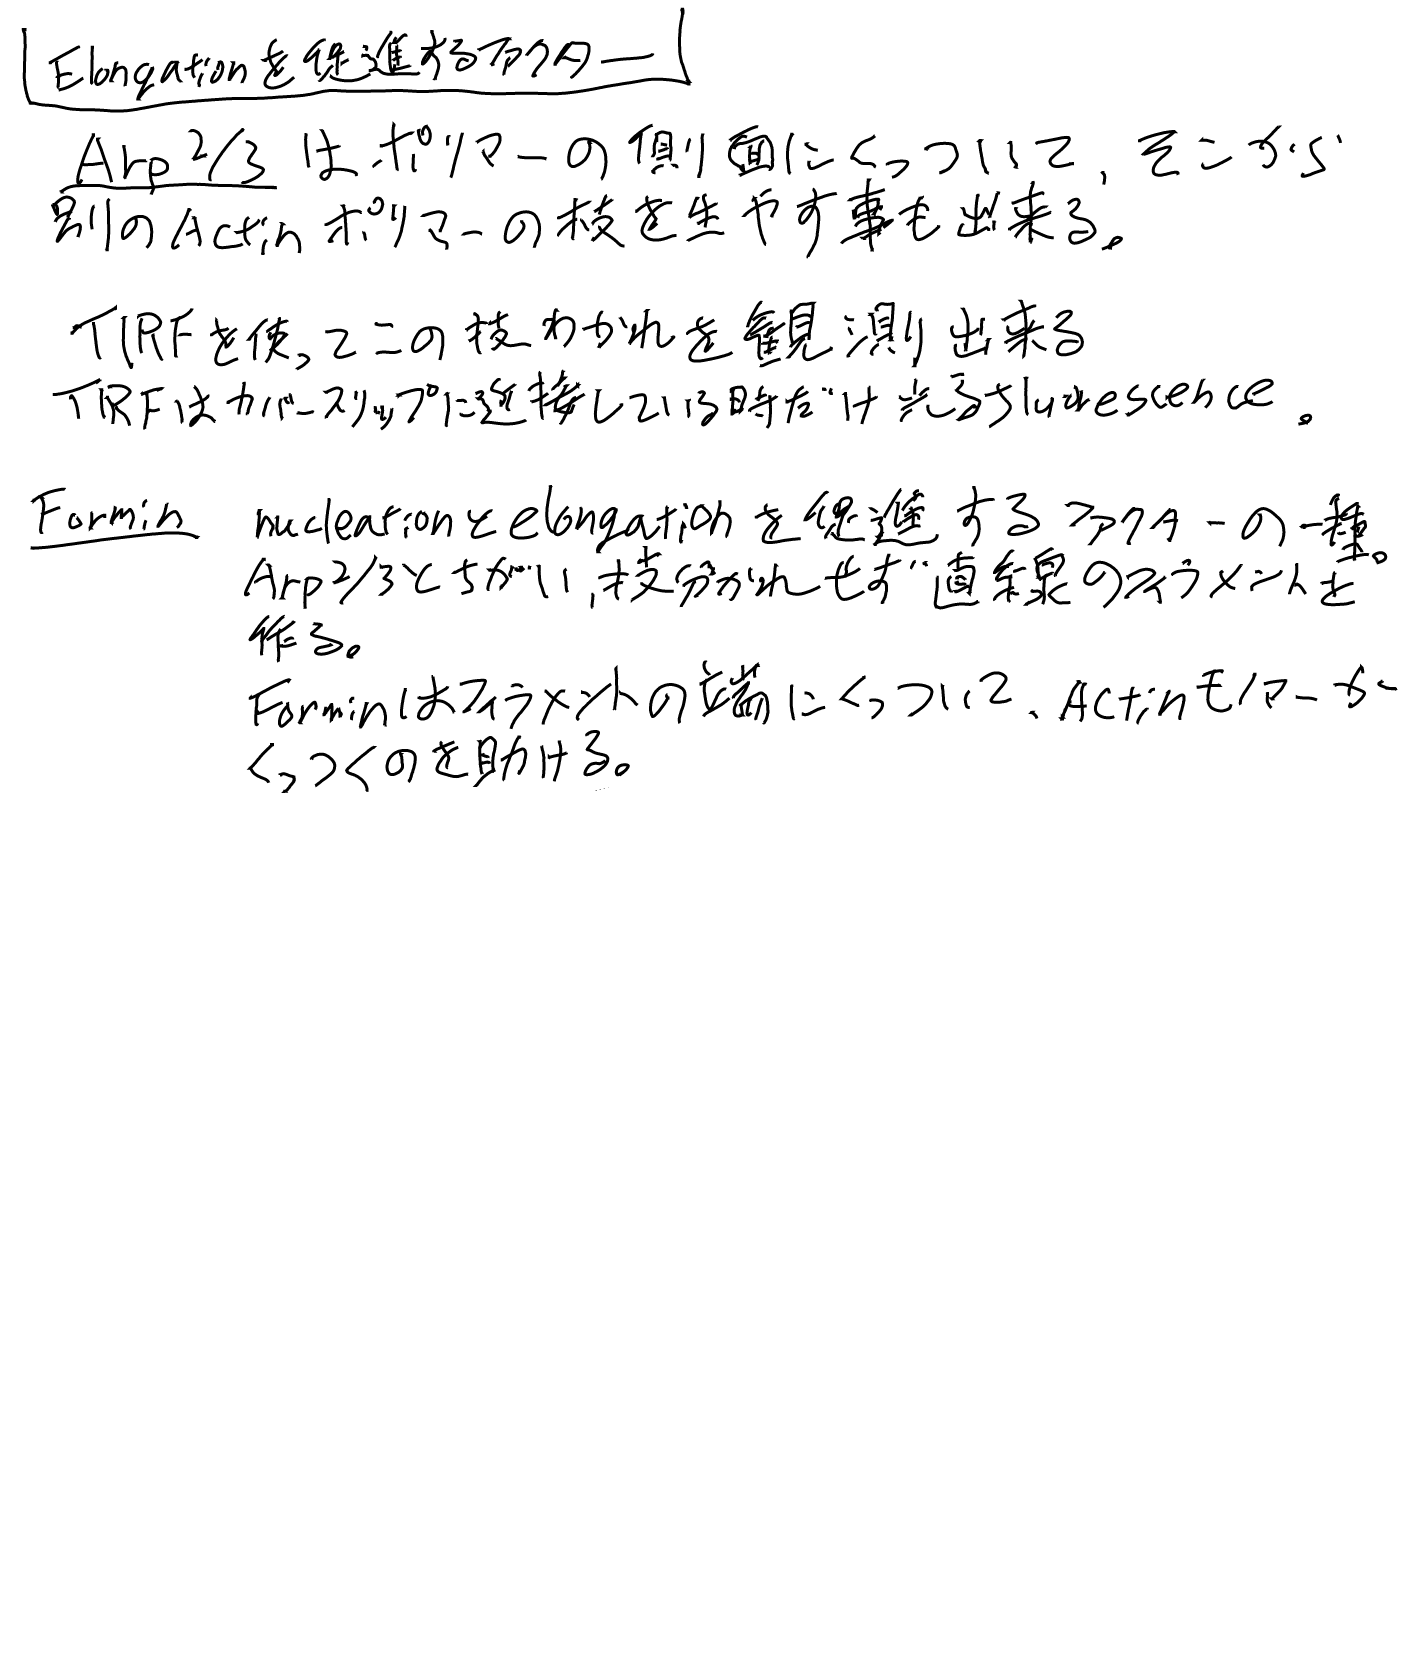 Elongationを促進するファクター
Arp2/3はポリマーの側面にくっついて、そこから
別のActinポリマーの枝を生やす事も出来る。
TIRFを使ってこの枝わかれを観測出来る
TIRFはカバースリップに近接している時だけ光るfluorescence。
Formin nucleationとelongationを促進するファクターの一種。
Arp2/3とちがい、枝分かれせず直線のフィラメントを
作る。
Forminはフィラメントの端にくっついて、Actinモノマーが
くっつくのを助ける。